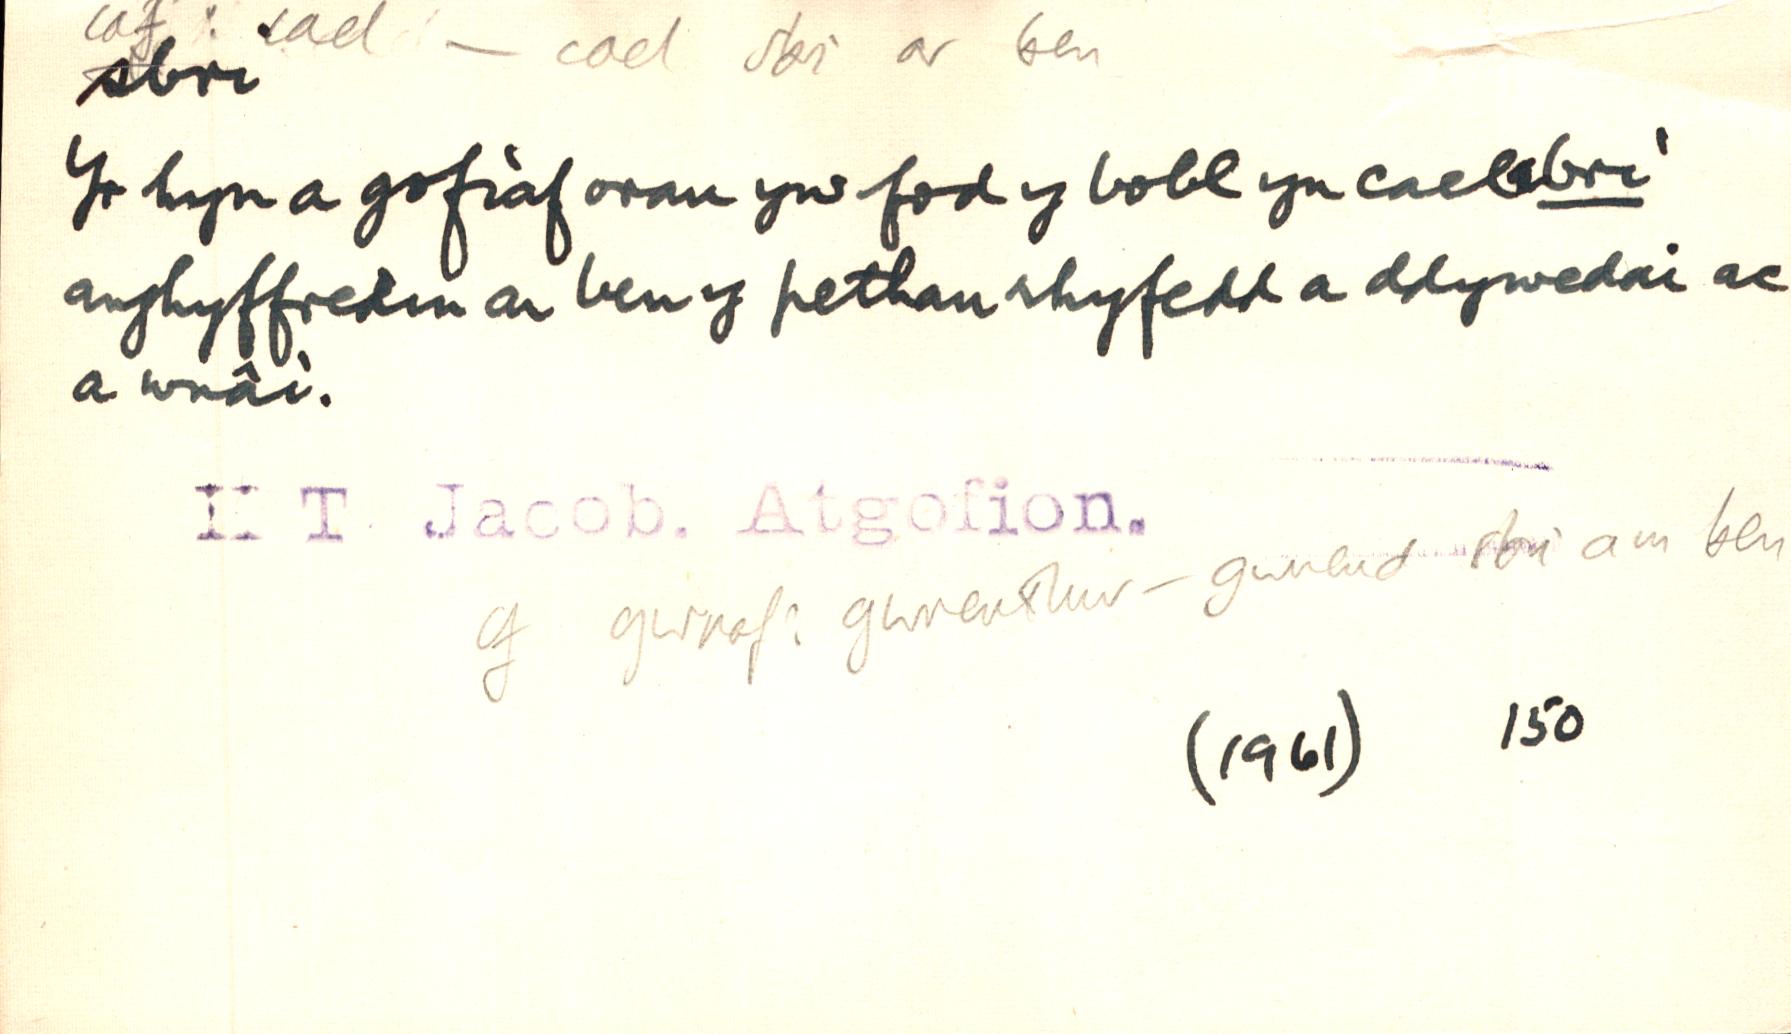 caf: cael — cael sbri ar ben
sbri
Yr hyn a gofiaf orau yw fod y bobl yn cael sbri
anghyffredin ar ben y pethau rhyfedd a ddywedai ac
a wnâi.
H T Jacob. Atgofion.
cf gwnaf: gwneuthur — gwneud sbri am ben
(1961) 150